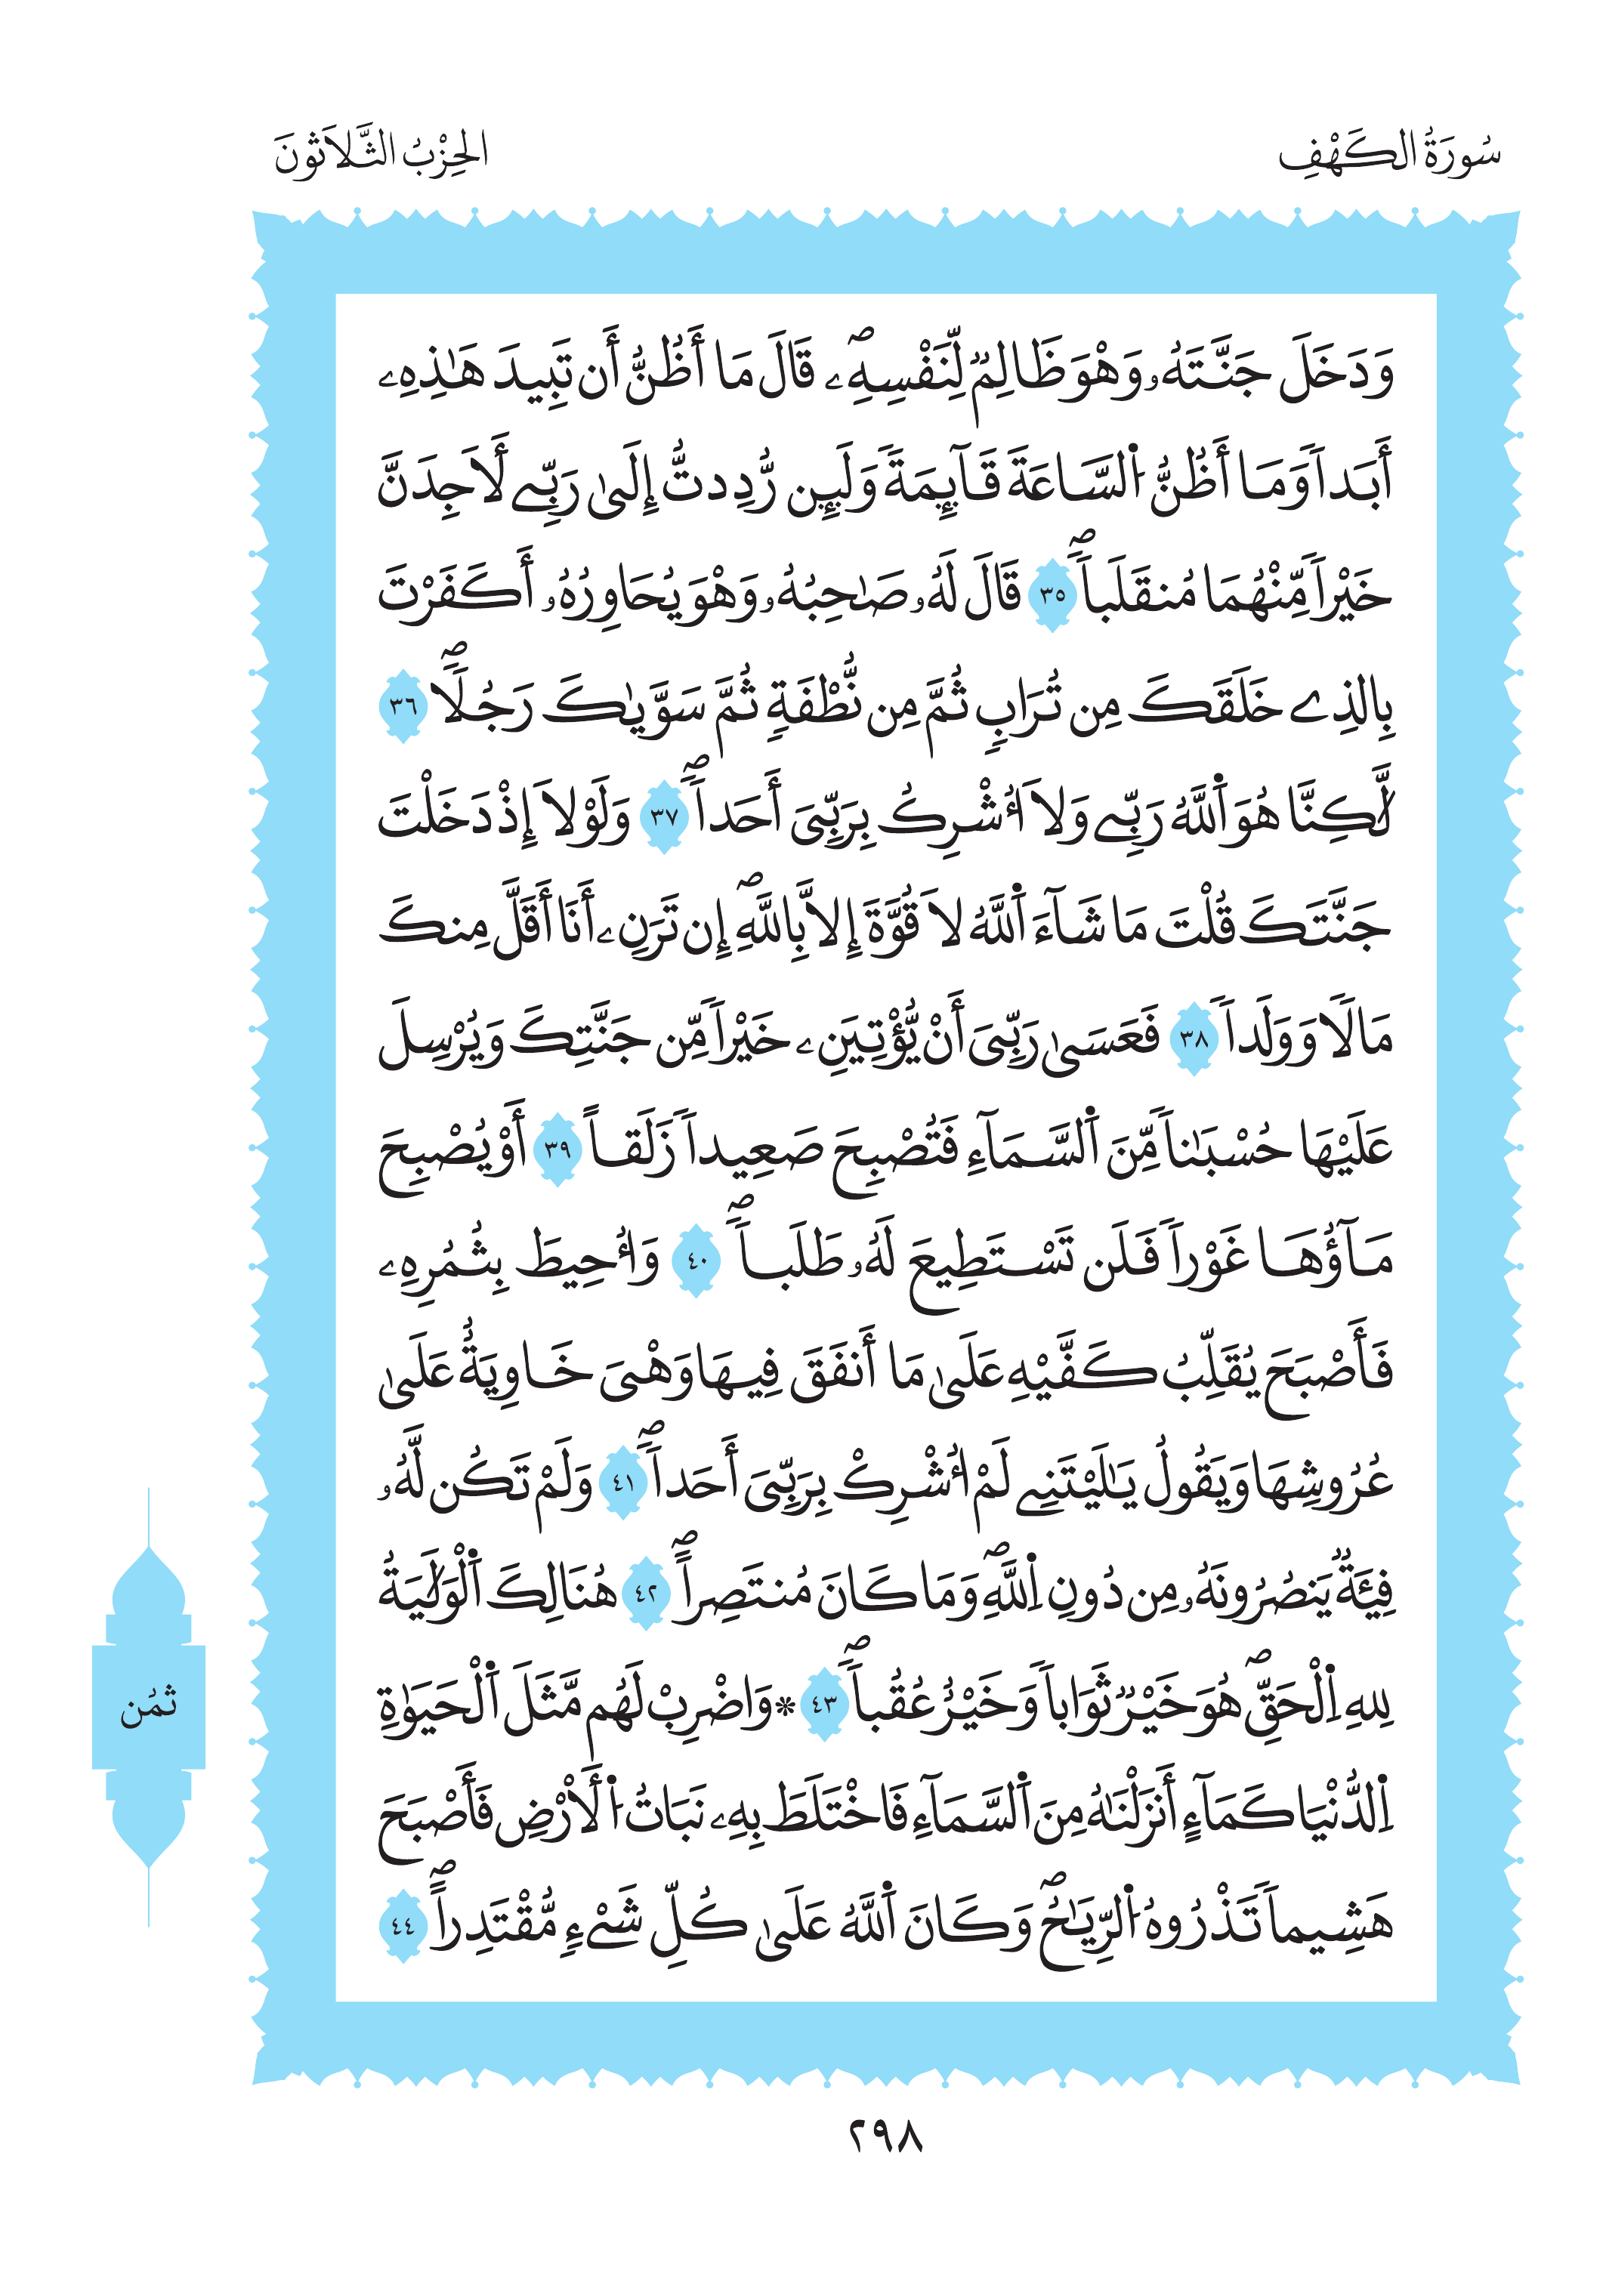 سُورَةُ الكَهْفِ
الحِزْبُ الثَّلَاثُونَ
وَدَخَلَ جَنَّتَهُۥ وَهْوَ ظَالِمٌ لِّنَفْسِهِۦۖ قَالَ مَا أَظُنُّ أَن تَبِيدَ هَٰذِهِۦ
أَبَداٗ وَمَا أَظُنُّ اُ۬لسَّاعَةَ قَآئِمَةٗ وَلَئِن رُّدِدتُّ إِلَىٰ رَبِّے لَأَجِدَنَّ
خَيْراٗ مِّنْهُمَا مُنقَلَباٗۖ ٣٥ قَالَ لَهُۥ صَٰحِبُهُۥ وَهْوَ يُحَاوِرُهُۥ أَكَفَرْتَ
بِالذِے خَلَقَكَ مِن تُرَابٖ ثُمَّ مِن نُّطْفَةٖ ثُمَّ سَوَّيٰكَ رَجُلاٗۖ ٣٦
لَّٰكِنَّا هُوَ اَ۬للَّهُ رَبِّے وَلَا أُشْرِكُ بِرَبِّيَ أَحَداٗۖ ٣٧ وَلَوْلَا إِذْ دَخَلْتَ
جَنَّتَكَ قُلْتَ مَا شَآءَ اَ۬للَّهُ لَا قُوَّةَ إِلَّا بِاللَّهِۖ إِن تَرَنِۦ أَنَا أَقَلَّ مِنكَ
مَالاٗ وَوَلَداٗ ٣٨ فَعَسَىٰ رَبِّيَ أَنْ يُّؤْتِيَنِۦ خَيْراٗ مِّن جَنَّتِكَ وَيُرْسِلَ
عَلَيْهَا حُسْبَٰناٗ مِّنَ اَ۬لسَّمَآءِ فَتُصْبِحَ صَعِيداٗ زَلَقاً ٣٩ أَوْ يُصْبِحَ
مَآؤُهَا غَوْراٗ فَلَن تَسْتَطِيعَ لَهُۥ طَلَباٗۖ ٤٠ وَأُحِيطَ بِثُمُرِهِۦ
فَأَصْبَحَ يُقَلِّبُ كَفَّيْهِ عَلَىٰ مَا أَنفَقَ فِيهَا وَهْيَ خَاوِيَةٌ عَلَىٰ
عُرُوشِهَا وَيَقُولُ يَٰلَيْتَنِے لَمْ أُشْرِكْ بِرَبِّيَ أَحَداٗۖ ٤١ وَلَمْ تَكُن لَّهُۥ
فِئَةٞ يَنصُرُونَهُۥ مِن دُونِ اِ۬للَّهِۖ وَمَا كَانَ مُنتَصِراًۖ ٤٢ هُنَالِكَ اَ۬لْوَلَٰيَةُ
لِلهِ اِ۬لْحَقِّۖ هُوَ خَيْرٞ ثَوَاباٗ وَخَيْرٌ عُقُباٗۖ ٤٣ ۞وَاضْرِبْ لَهُم مَّثَلَ اَ۬لْحَيَوٰةِ
اِ۬لدُّنْيَا كَمَآءٍ أَنزَلْنَٰهُ مِنَ اَ۬لسَّمَآءِ فَاخْتَلَطَ بِهِۦ نَبَاتُ اُ۬لْأَرْضِ فَأَصْبَحَ
هَشِيماٗ تَذْرُوهُ اُ۬لرِّيَٰحُۖ وَكَانَ اَ۬للَّهُ عَلَىٰ كُلِّ شَےْءٖ مُّقْتَدِراًۖ ٤٤
ثُمُن
٢٩٨